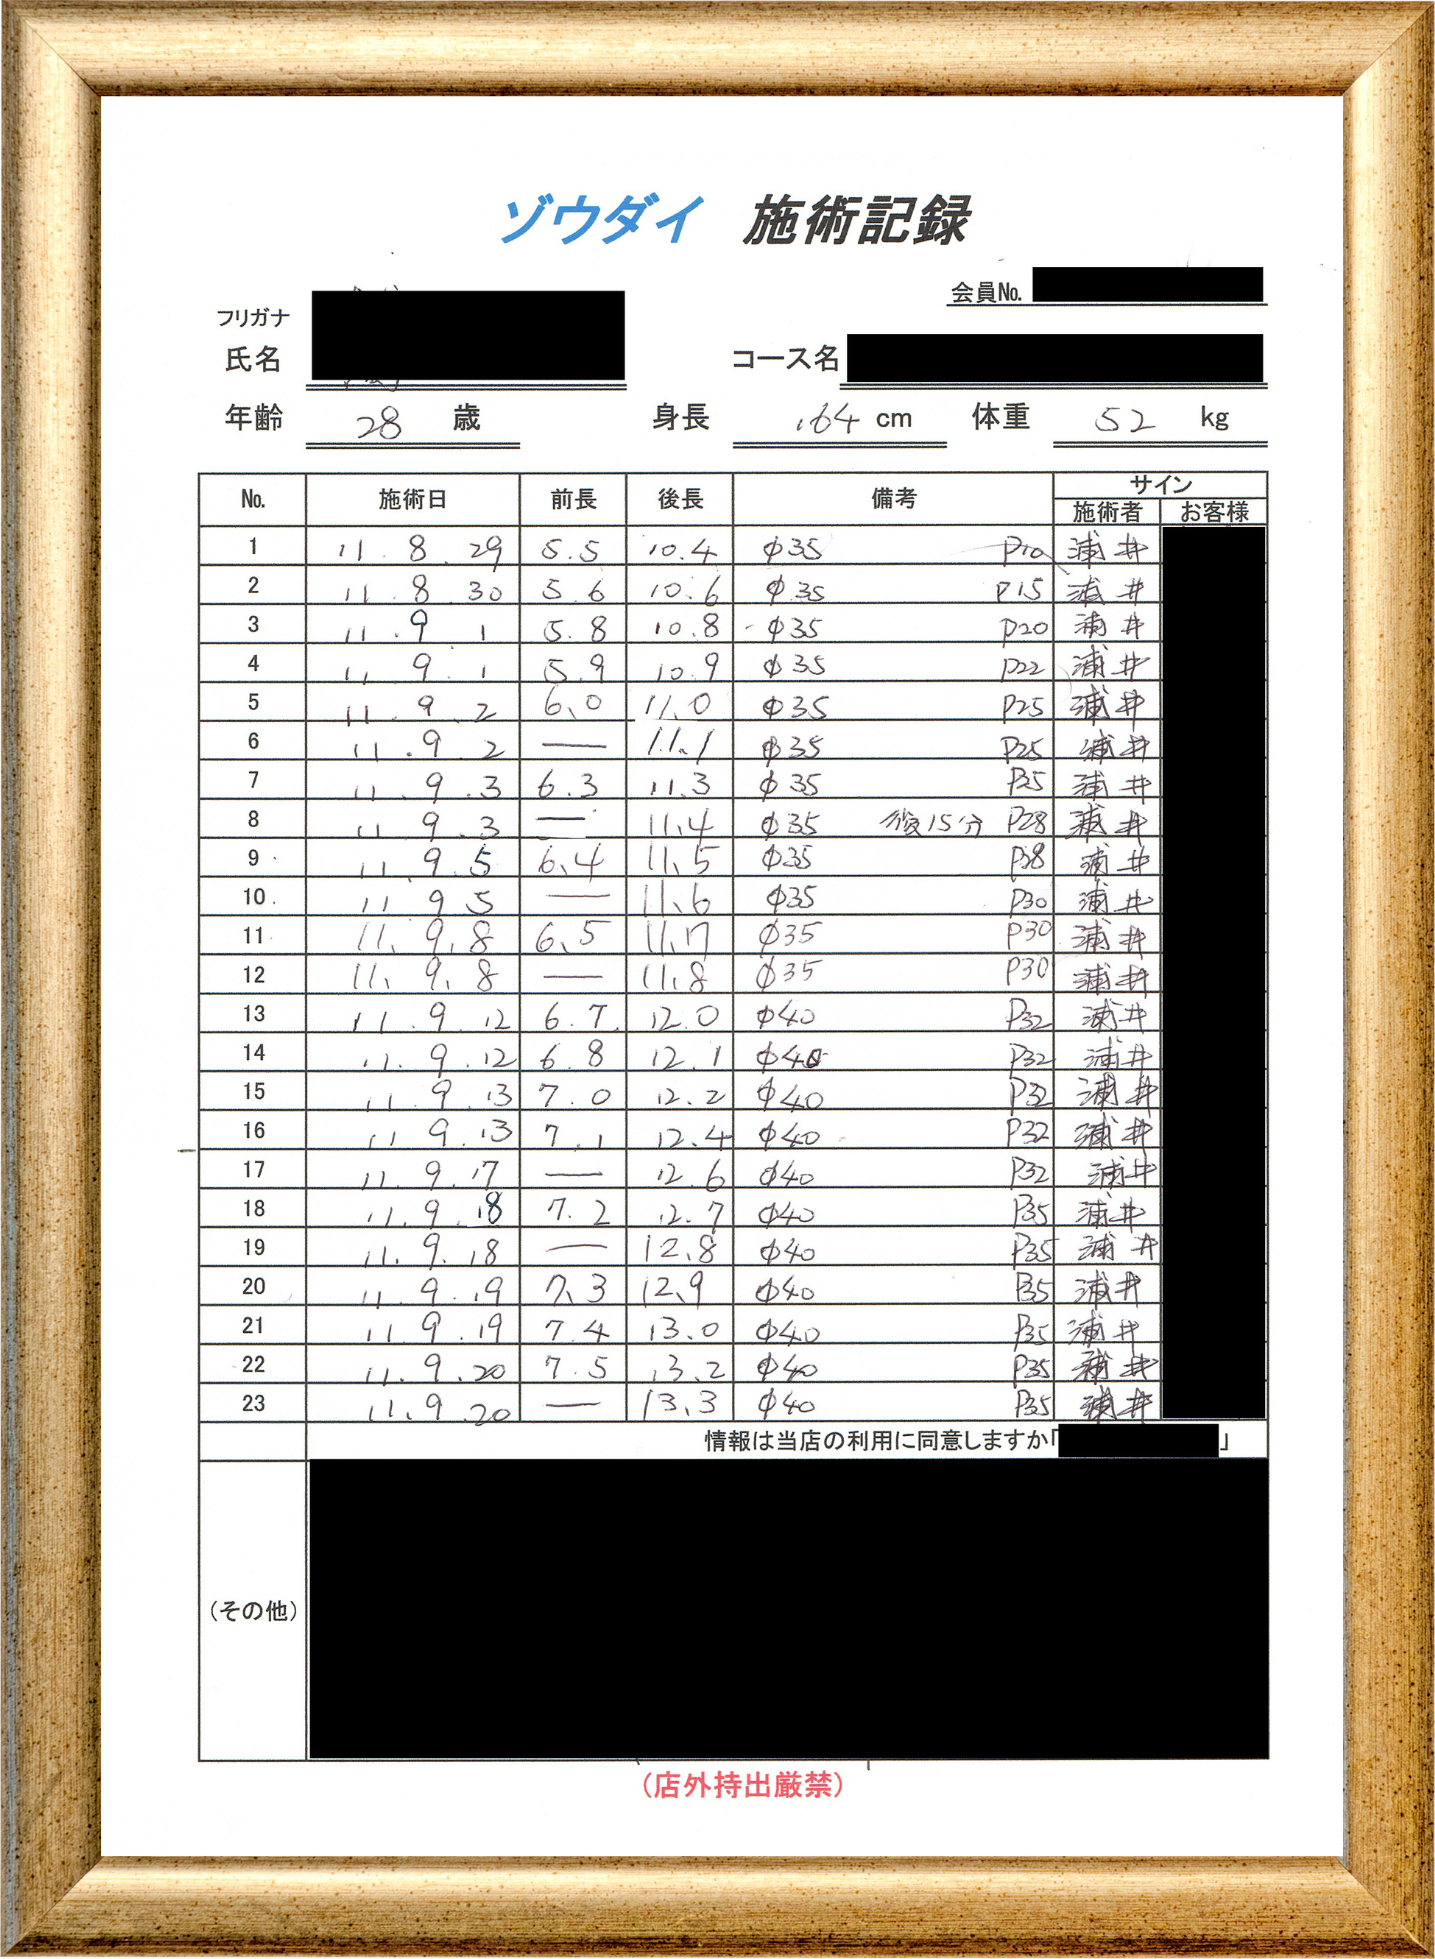 ゾウダイ 施術記録
会員No.
フリガナ
氏名 コース名
年齢 28 歳 身長 164 cm 体重 52 kg
No. 施術日 前長 後長 備考 サイン
施術者 お客様
1 11.8.29 5.5 10.4 φ35 P10 浦井
2 11.8.30 5.6 10.6 φ35 P15 浦井
3 11.9.1 5.8 10.8 φ35 P20 浦井
4 11.9.1 5.9 10.9 φ35 P22 浦井
5 11.9.2 6.0 11.0 φ35 P25 浦井
6 11.9.2 — 11.1 φ35 P25 浦井
7 11.9.3 6.3 11.3 φ35 P25 浦井
8 11.9.3 — 11.4 φ35 後15分 P28 浦井
9 11.9.5 6.4 11.5 φ35 P38 浦井
10 11.9.5 — 11.6 φ35 P30 浦井
11 11.9.8 6.5 11.7 φ35 P30 浦井
12 11.9.8 — 11.8 φ35 P30 浦井
13 11.9.12 6.7 12.0 φ40 P32 浦井
14 11.9.12 6.8 12.1 φ40 P32 浦井
15 11.9.13 7.0 12.2 φ40 P32 浦井
16 11.9.13 7.1 12.4 φ40 P32 浦井
17 11.9.17 — 12.6 φ40 P32 浦井
18 11.9.18 7.2 12.7 φ40 P35 浦井
19 11.9.18 — 12.8 φ40 P35 浦井
20 11.9.19 7.3 12.9 φ40 P35 浦井
21 11.9.19 7.4 13.0 φ40 P35 浦井
22 11.9.20 7.5 13.2 φ40 P35 浦井
23 11.9.20 — 13.3 φ40 P35 浦井
情報は当店の利用に同意しますか「 」
(その他)
(店外持出厳禁)